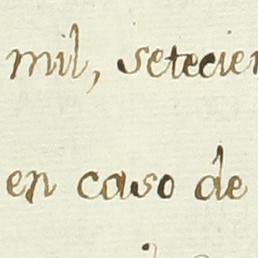 mil, setecien
en caso de